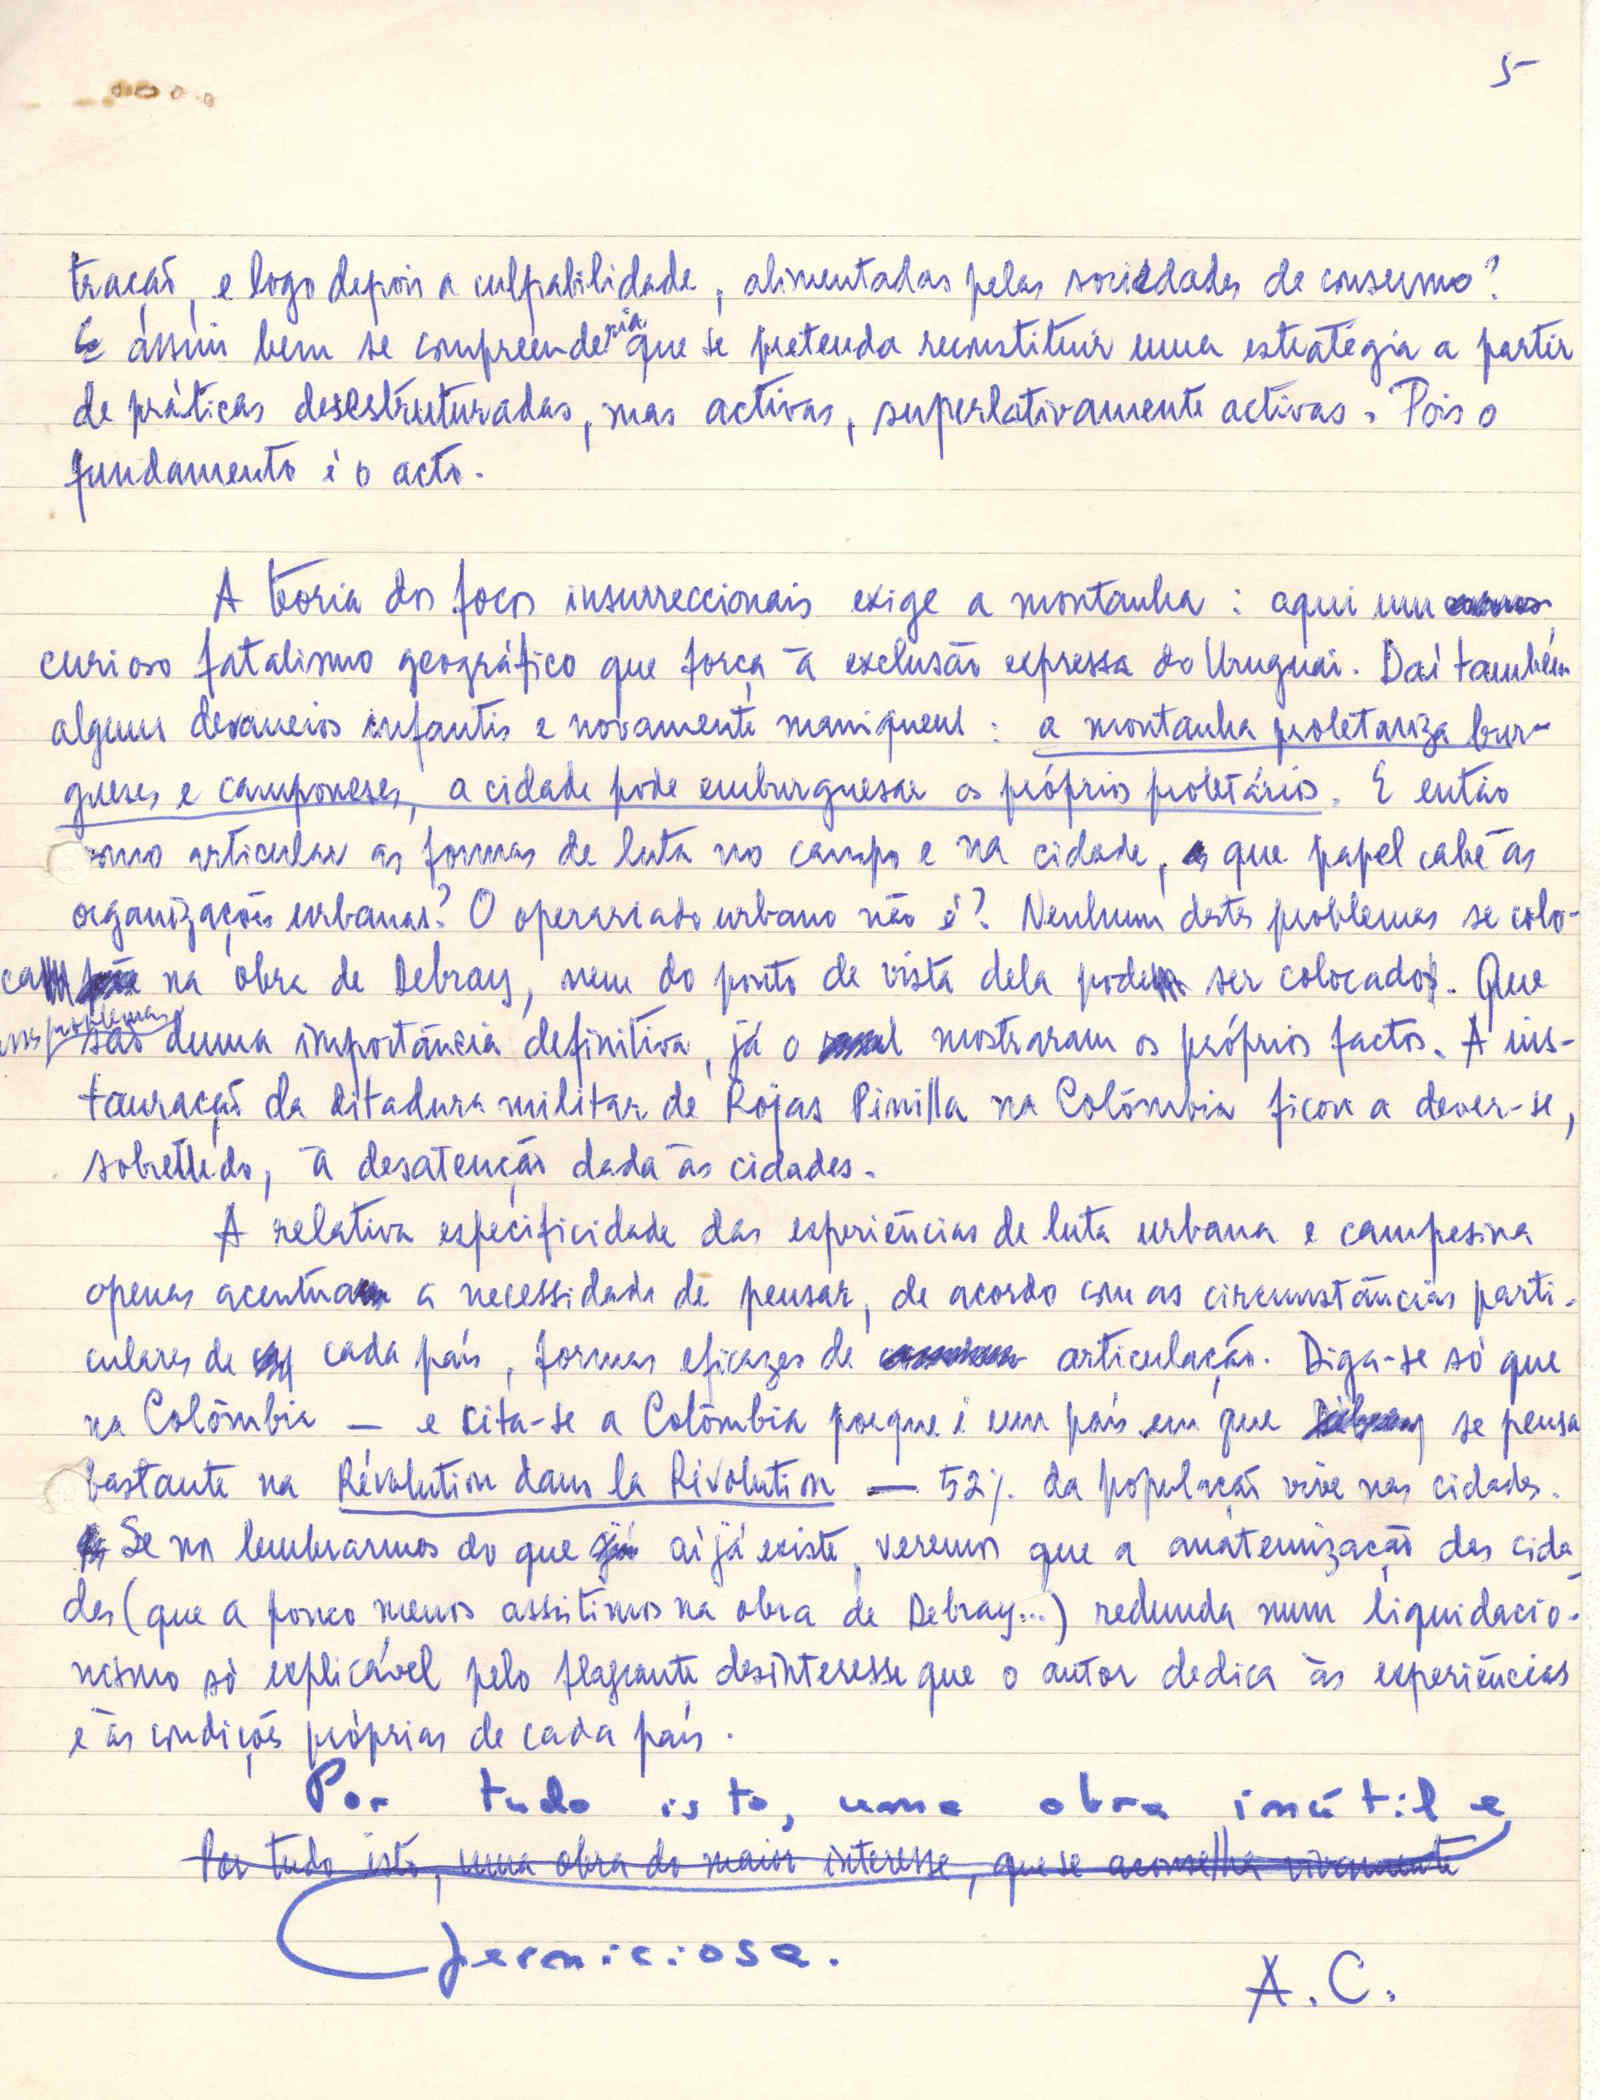 5
tração, e logo depois a culpabilidade, alimentadas pelas sociedades de consumo?
E assim bem se compreenderia que se pretenda reconstituir uma estratégia a partir
de práticas desestruturadas, mas activas, superlativamente activas. Pois o
fundamento é o acto.
A teoria dos focos insurreccionais exige a montanha : aqui um
curioso fatalismo geográfico que força à exclusão expressa do Uruguai. Daí também
alguns devaneios infantis e novamente maniqueus : a montanha proletariza bur-
gueses e camponeses, a cidade pode emburguesar os próprios proletários. E então
como articular as formas de luta no campo e na cidade, que papel cabe às
organizações urbanas? O operariado urbano não é? Nenhum destes problemas se colo-
ca na obra de Debray, nem do ponto de vista dela pode ser colocado. Que
problemas
são duma importância definitiva, já o mostraram os próprios factos. A ins-
tauração da ditadura militar de Rojas Pinilla na Colômbia ficou a dever-se,
sobretudo, à desatenção dada às cidades.
A relativa especificidade das experiências de luta urbana e campesina
apenas acentua a necessidade de pensar, de acordo com as circunstâncias parti-
culares de cada país, formas eficazes de articulação. Diga-se só que
na Colômbia — e cita-se a Colômbia porque é um país em que se pensa
bastante na Révolution dans la Révolution — 52% da população vive nas cidades.
Se nos lembrarmos do que aí já existe, veremos que a anatemização das cida
des (que a pouco menos assistimos na obra de Debray...) redunda num liquidacio-
nismo só explicável pelo flagrante desinteresse que o autor dedica às experiências
e às condições próprias de cada país.
Por tudo isto, uma obra inútil e
Por tudo isto, uma obra do maior interesse, que se aconselha vivamente
perniciosa.
A.C.